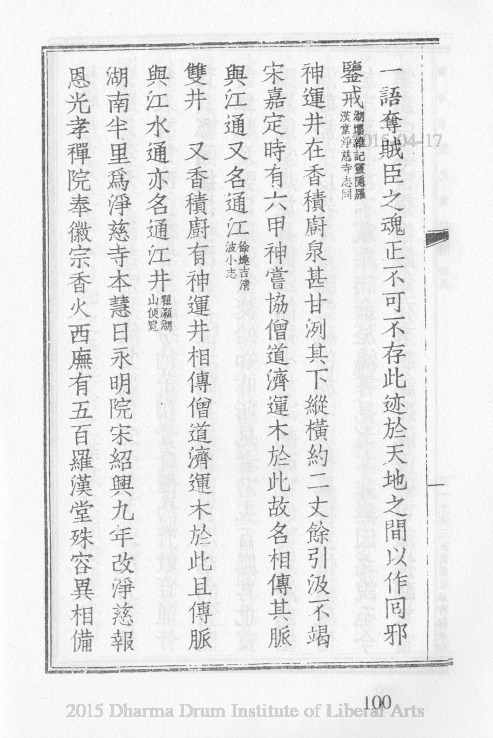 一語奪賊臣之魂正不可不存此迹於天地之間以作囘邪
鑒戒湖壖雜記靈隱羅漢堂淨慈寺志同
神運井在香積廚泉甚甘洌其下縱橫約二丈餘引汲不竭
宋嘉定時有六甲神嘗協僧道濟運木於此故名相傳其脈
與江通又名通江徐逢吉清波小志
雙井　又香積廚有神運井相傳僧道濟運木於此且傳脈
與江水通亦名通江井翟灝湖山便覽
湖南半里爲淨慈寺本慧日永明院宋紹興九年改淨慈報
恩光孝禪院奉徽宗香火西廡有五百羅漢堂殊容異相備
100
2015-04-17
2015 Dharma Drum Institute of Liberal Arts